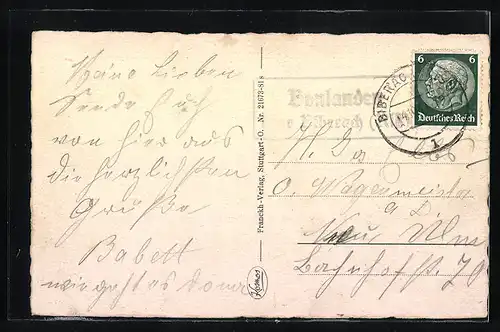 Meine Lieben
Sende Euch
von hier aus
die herzlichsten
Grüße
Babett
wie geht es
Franckh-Verlag, Stuttgart-O. Nr. 21073-818
Kosmos
Bonlanden
Biberach
BIBERACH
1
6 6
Deutsches Reich
O. Wagenmeister
a D
Neu Ulm
Bahnhofst.